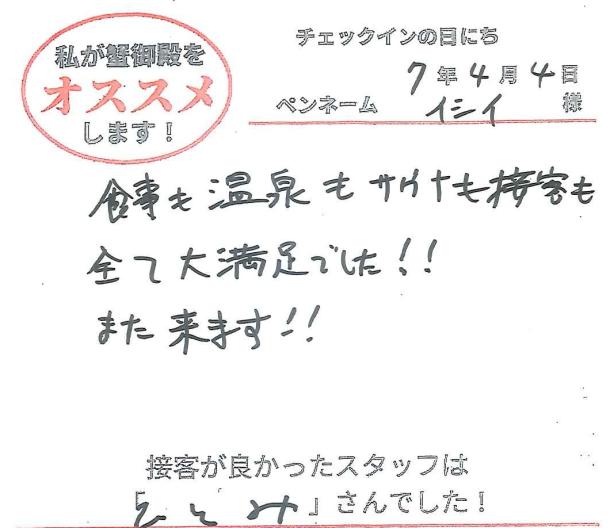 私が蟹御殿を
オススメ
します！
チェックインの日にち
7年4月4日
ペンネーム イシイ 様
食事も温泉もサウナも接客も
全て大満足でした!!
また来ます!!
接客が良かったスタッフは
「ひとみ」さんでした！